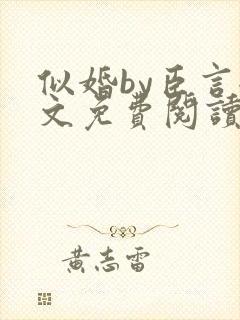 似婚by臣言
文免費閱讀
黃志雷